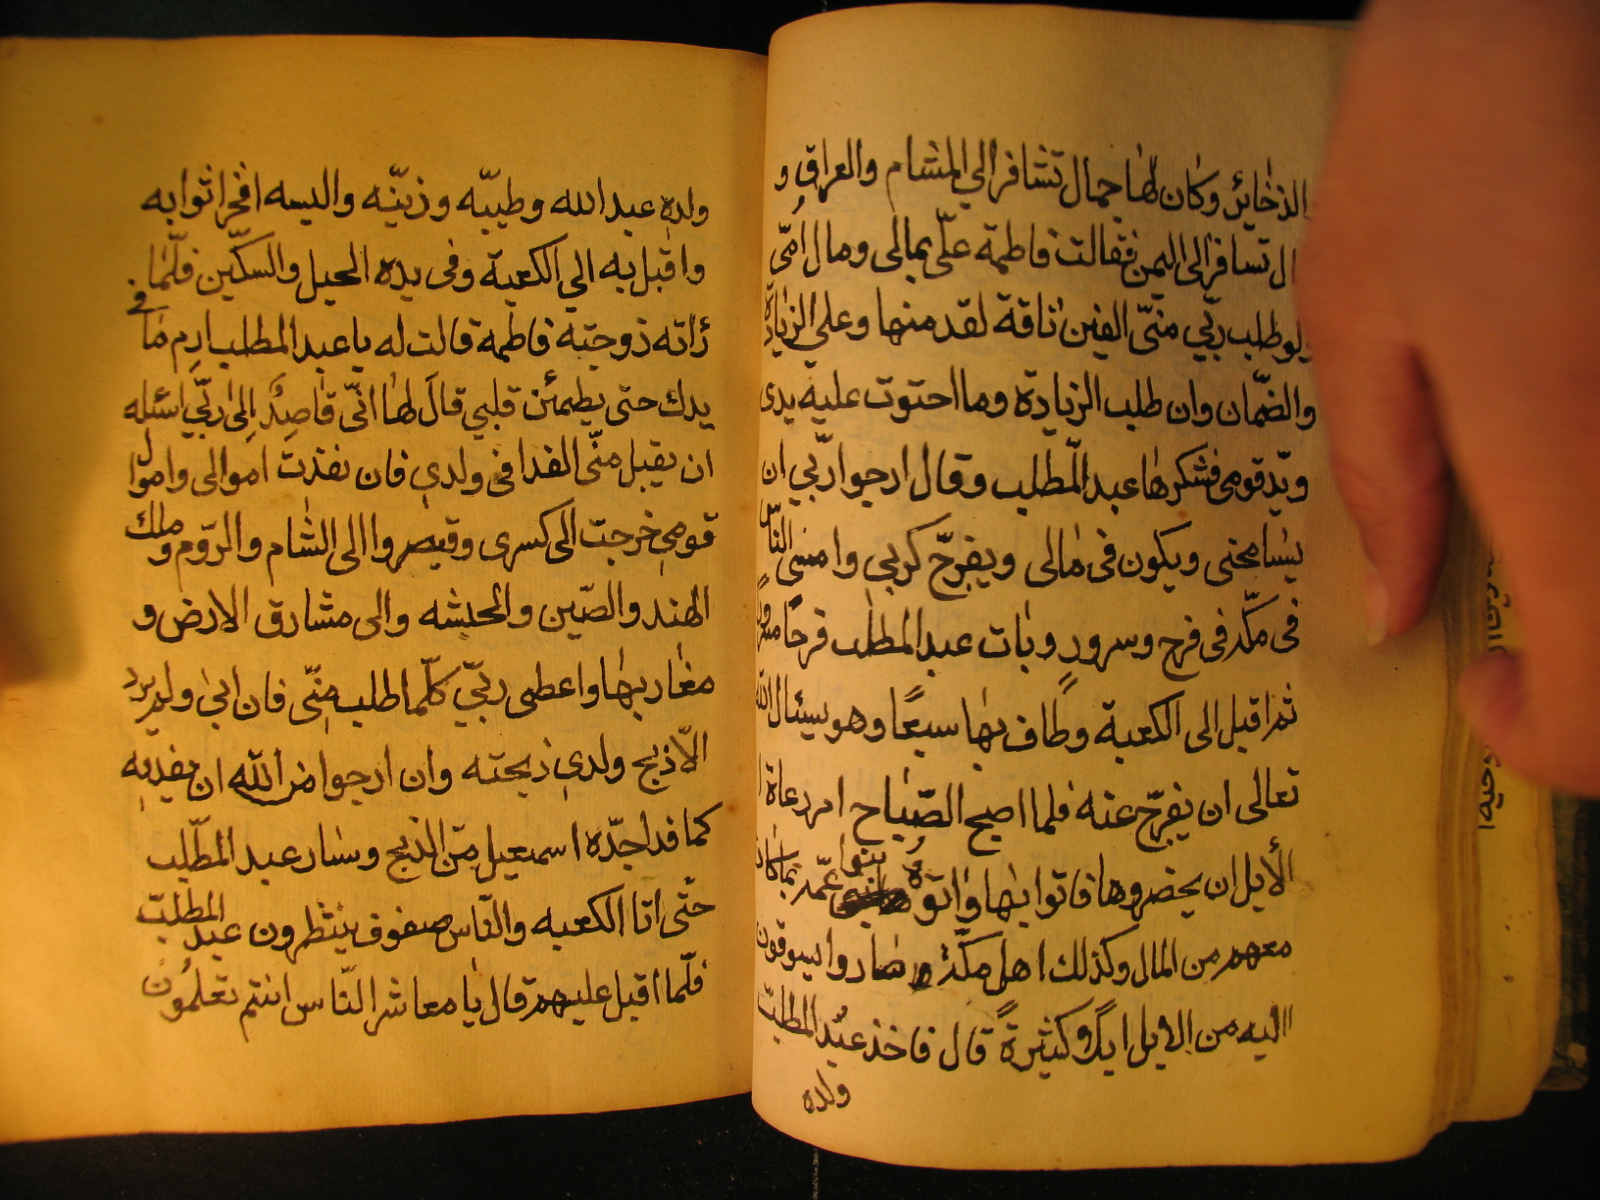 الذخاير وكان لها جمال تشافر الي المشام والعراق و
ال تسافر الى اليمن فقالت فاطمة علّى بمالى ومال امّى
ولو طلب ربّي منّى الفين ناقة لقدمنها وعلى الزيادة
والضمّان وان طلب الزيادة وما احتوت عليه يدى
ويد قومى فشكرها عبد المطّلب وقال ارجوا ربّي ان
يسامحنى ويكون فى مالى ويفرجّ كربي وامسى النّاس
فى مكّة فى فرح وسرور وبات عبد المطلب فرحًا مسرورًا
ثم اقبل الى الكعبة وطاف بها سبعًا وهو يسئال الله
تعالى ان يفرجّ عنه فلما اصبح الصّباح امر دعاة ا
الأبل ان يحضروها فاتوا بها واتوه بنوا عمّه بما كان
معهم من المال وكذلك اهل مكّة وصاروا يسوقون
اليه من الابل كثيرة قال فاخذ عبد المطلب
ولده
ولده عبد الله وطيبّه وزينّه والبسه افخر اثوابه
واقبل به الي الكعبة وفى يده الحبل والسكّين فلّما
رأته زوجته فاطمة قالت له يا عبد المطلب ارم ما فى
يدك حتى يطمئن قلبي قال لها انّى قاصدٌ الى ربّي اسئله
ان يقبل منّى الفدا فى ولدي فان نفذت اموالى واموال
قومي خرجت الى كسرى وقيصر والى الشام والرّوم وملك
الهند والصّين والحبشه والى مشارق الارض و
مغاربها واعطى ربّي كلّما طلبه منّى فان ابى ولم يرد
الّا ذبح ولدي ذبحته وان ارجوا من الله ان يفديه
كما فدا جدّه اسمعيل من الذبح وسار عبد المطّلب
حتّى اتا الكعبه والنّاس صفوف ينتظرون عبد المطلب
فلّما اقبل عليهم قال يا معاشر النّاس انتم تعلمون